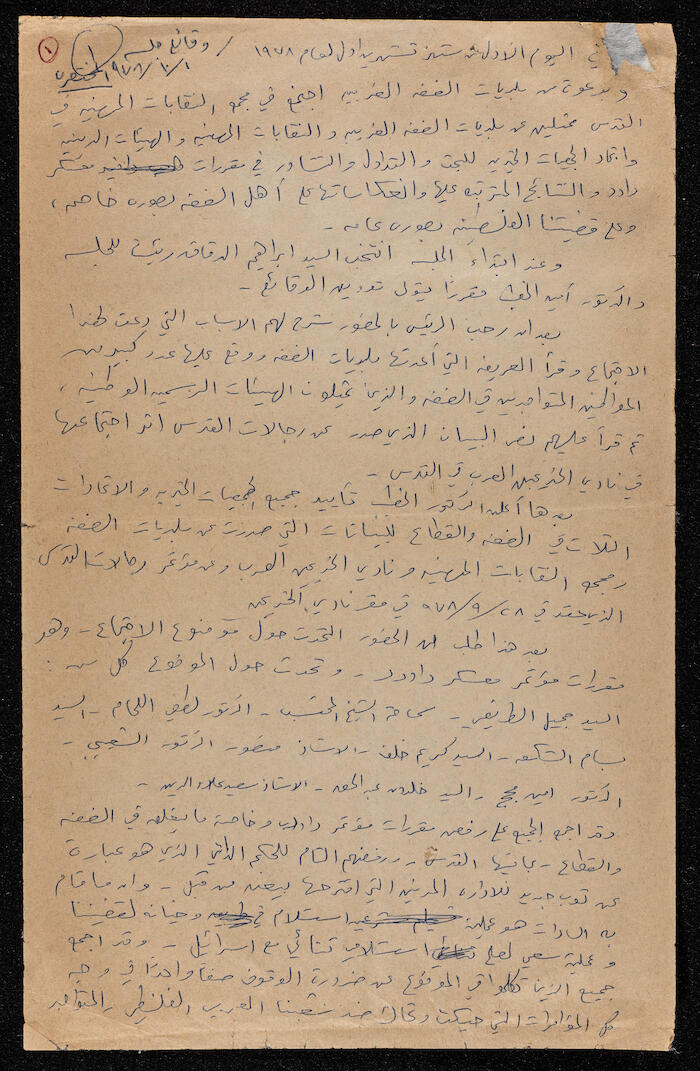 ١
وقائع جلسة
١٩٧٨/١٠/١
في اليوم الاول من شهر تشرين اول لعام ١٩٧٨
وبدعوة من بلديات الضفه الغربيه اجتمع في مجمع النقابات المهنيه في
القدس ممثلين عن بلديات الضفه الغربيه والنقابات المهنيه والهيئات الدينيه
واتحاد الجمعيات الخيريه للبحث والتداول والتشاور في مقررات معسكر
داود والنتائج المترتبه عليها وانعكاساتها على أهل الضفه بصوره خاصه،
وعلى قضيتنا الفلسطينيه بصوره عامه -
وعند ابتداء الجلسه انتخب السيد ابراهيم الدقاق رئيسا للجلسه
والدكتور أمين الخطيب مقررا يتولى تدوين الوقائع -
بعد ان رحب الرئيس بالحضور شرح لهم الاسباب التي دعت لهذا
الاجتماع وقرأ العريضه التي أعدتها بلديات الضفه ووقع عليها عدد كبير من
المواطنين المتواجدين في الضفه والذين يمثلون الهيئات الرسميه الوطنيه،
ثم قرأ عليهم نص البيان الذي صدر عن رجالات القدس اثر اجتماعها
في نادي الخريجين العرب في القدس -
بعدها أعلن الدكتور الخطيب تأييد جميع الجمعيات الخيريه والاتحادات
الثلاث في الضفه والقطاع للبيانات التي صدرت عن بلديات الضفه
ومجمع النقابات المهنيه ونادي الخريجين العرب وعن مؤتمر رجالات القدس
الذي عقد في ٩٧٨/٩/٢٨ في مقر نادي الخريجين
بعد هذا طلب من الحضور التحدث حول موضوع الاجتماع - وهو
مقررات مؤتمر معسكر داوود - وتحدث حول الموضوع كل من:
السيد جميل الطريفي - سماحة الشيخ المحتسب - الدكتور لطفي اللحام - السيد
بسام الشكعه - السيد كريم خلف - الاستاذ منصور - الدكتور الشعيبي -
الدكتور امين مجج - السيد خلدون عبد الحق - الاستاذ سعيد علاء الدين -
وقد اجمع الجميع على رفض مقررات مؤتمر داوود وخاصة ما يتعلق في الضفه
والقطاع - بما فيها القدس - ورفضهم التام للحكم الذاتي الذي هو عبارة
عن ثوب جديد للاداره المدنيه التي اقترحها بيغن من قبل - وان ما قام
به السادات هو عملية استسلام وخيانه لقضيتنا
وعملية سعي لصلح استسلامي ثنائي مع اسرائيل - وقد اجمع
جميع الذين تكلموا في الموضوع عن ضرورة الوقوف صفا واحدا في وجه
كل المؤامرات التي حيكت وتحاك ضد شعبنا العربي الفلسطيني - المتواجد